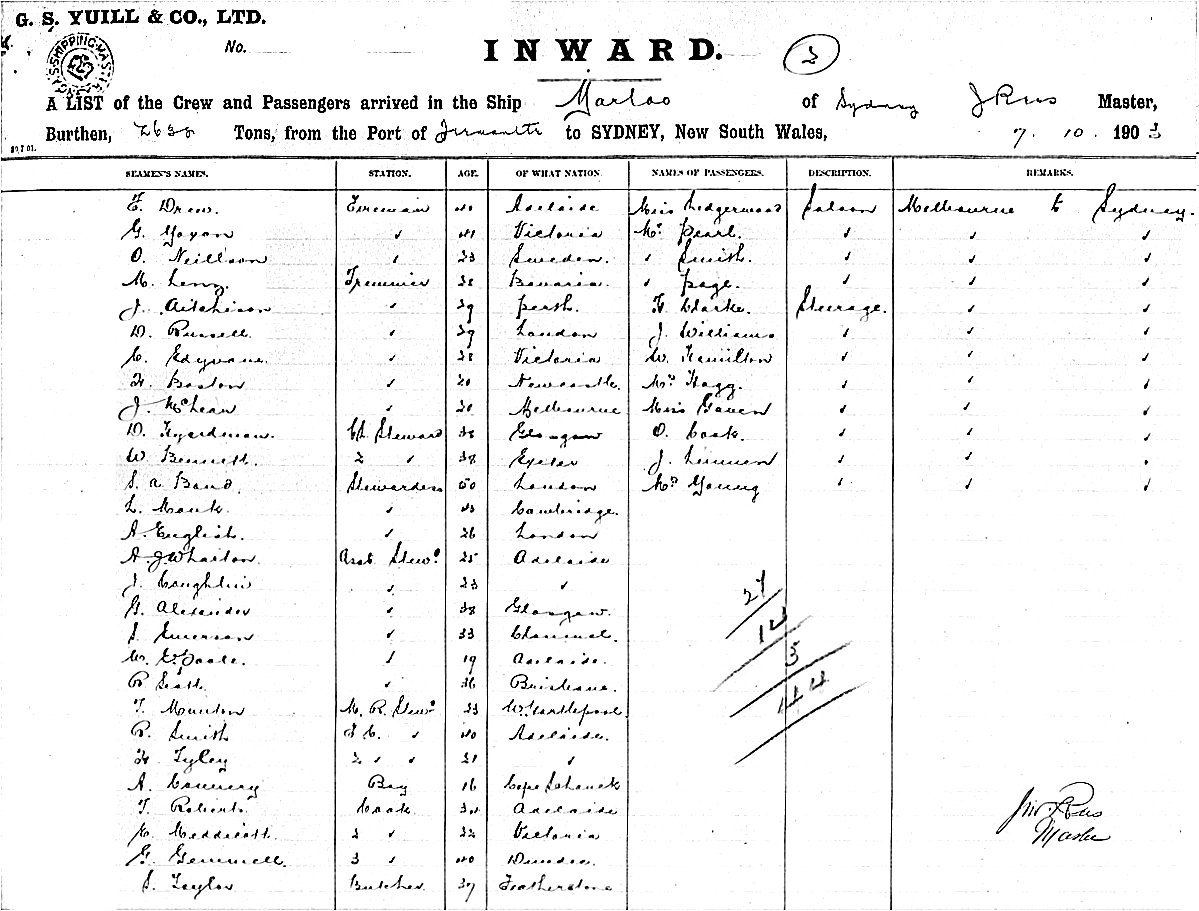 G. S. YUILL & CO., LTD.
No.
INWARD.
3
A LIST of the Crew and Passengers arrived in the Ship Marloo of Sydney J Rees Master,
Burthen, 2630 Tons, from the Port of to SYDNEY, New South Wales, 7. 10. 1903
SEAMEN'S NAMES. STATION. AGE. OF WHAT NATION. NAMES OF PASSENGERS. DESCRIPTION. REMARKS.
F. Drew Fireman 40 Adelaide Miss Ledgerwood Saloon Melbourne to Sydney.
G. 41 Victoria Mr Pearl
O. Neillson 23 Sweden. Smith.
M. Trimmer 38 Bavaria. Page.
J. Aitchison 39 Perth. H Clarke. Steerage.
D. Russell 39 London J. Williams
C. Edyvane 38 Victoria W. Hamilton
H. Boston 20 Newcastle. Mrs Hagg.
J. McLean 30 Melbourne Miss Gaven
D. Hyardman Ch Steward 38 Glasgow O. Cook.
W. Bennett. 2 38 Exeter J. Linnen
S. A Band Stewardess 50 London Mrs Young
L. 43 Cambridge.
A. English. 26 London
A J Wharton Asst Stewd 25 Adelaide
J. Coughlin 23
G. Alexander 38 Glasgow.
S. Emerson 33 Channel.
W. 19 Adelaide.
R 36 Brisbane.
T. Manton M. R. Stewd 33 W. Hartlepool
R. Smith F C. 40 Adelaide.
H. Tyley 2 21
A. Boy 16 Cape Schanck
T. Roberts Cook 34 Adelaide
C. Meddicott 2 32 Victoria
G. Gemmell. 3 40 Dundee.
S. Taylor Butcher. 37 Featherstone
27
12
5
144
Jno. Rees
Master